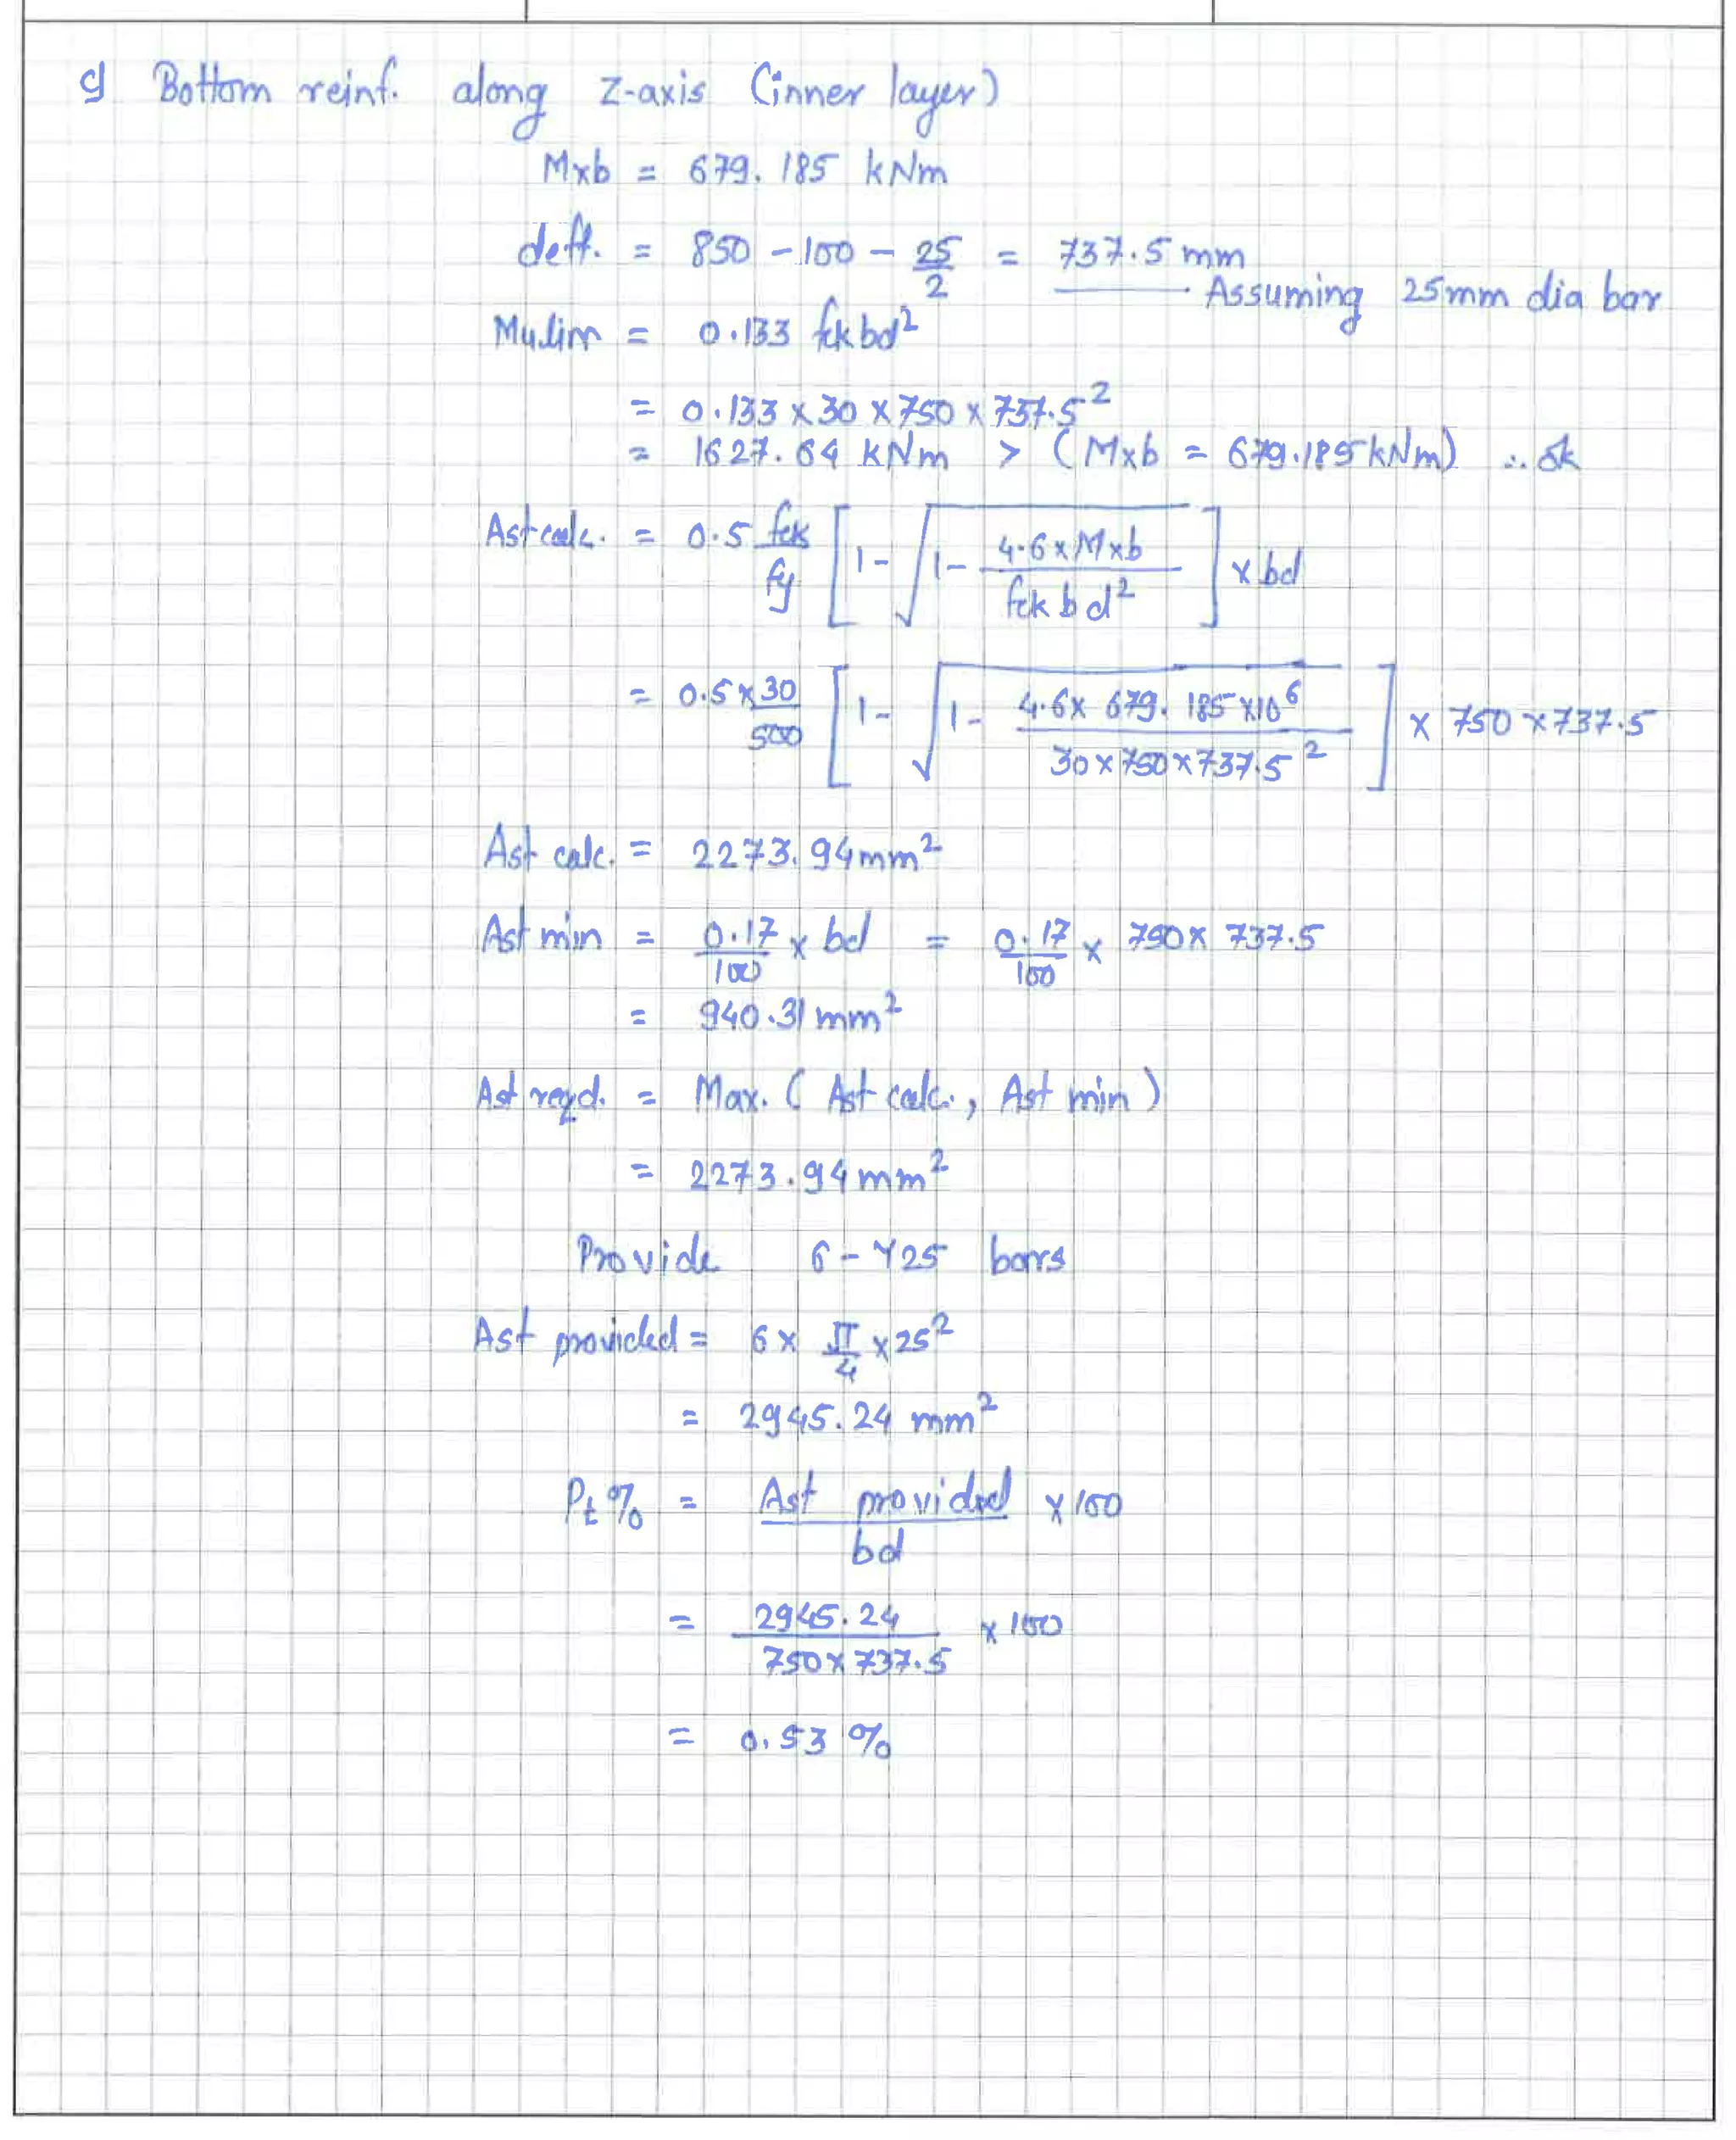 c) Bottom reinf. along z-axis (inner layer)
Mxb = 679.185 kNm
deff. = 850 - 100 - 25/2 = 737.5 mm
Assuming 25mm dia bar
Mulim = 0.133 fck bd²
= 0.133 x 30 x 750 x 737.5²
= 1627.64 kNm > (Mxb = 679.185 kNm) ∴ ok
Ast calc. = 0.5 fck/fy [1 - √(1 - (4.6 x Mxb)/(fck b d²))] x bd
= 0.5 x 30/500 [1 - √(1 - (4.6 x 679.185 x 10⁶)/(30 x 750 x 737.5²))] x 750 x 737.5
Ast calc. = 2273.94 mm²
Ast min = 0.17/100 x bd = 0.17/100 x 750 x 737.5
= 940.31 mm²
Ast reqd. = Max. (Ast calc., Ast min)
= 2273.94 mm²
Provide 6 - Y25 bars
Ast provided = 6 x π/4 x 25²
= 2945.24 mm²
Pt% = Ast provided/bd x 100
= 2945.24/(750 x 737.5) x 100
= 0.53 %